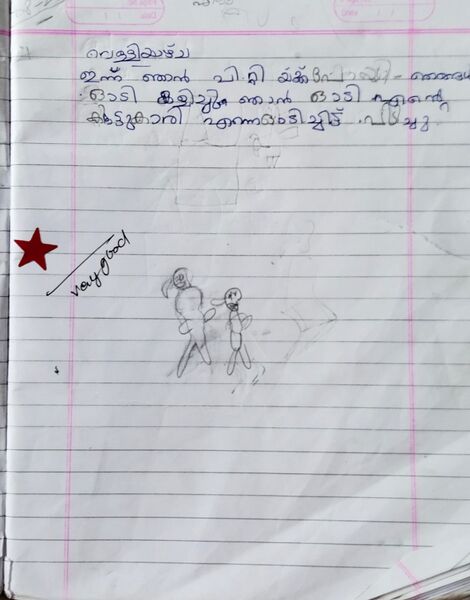 വെള്ളിയാഴ്ച
ഇന്ന് ഞാൻ പി.റ്റി യ്ക്ക് പോയി. ഞങ്ങൾ
ഓടി കളിച്ചു ഞാൻ ഓടി എന്റെ
കൂട്ടുകാരി എന്നെ ഓടിച്ചിട്ട് പിടിച്ചു
very good